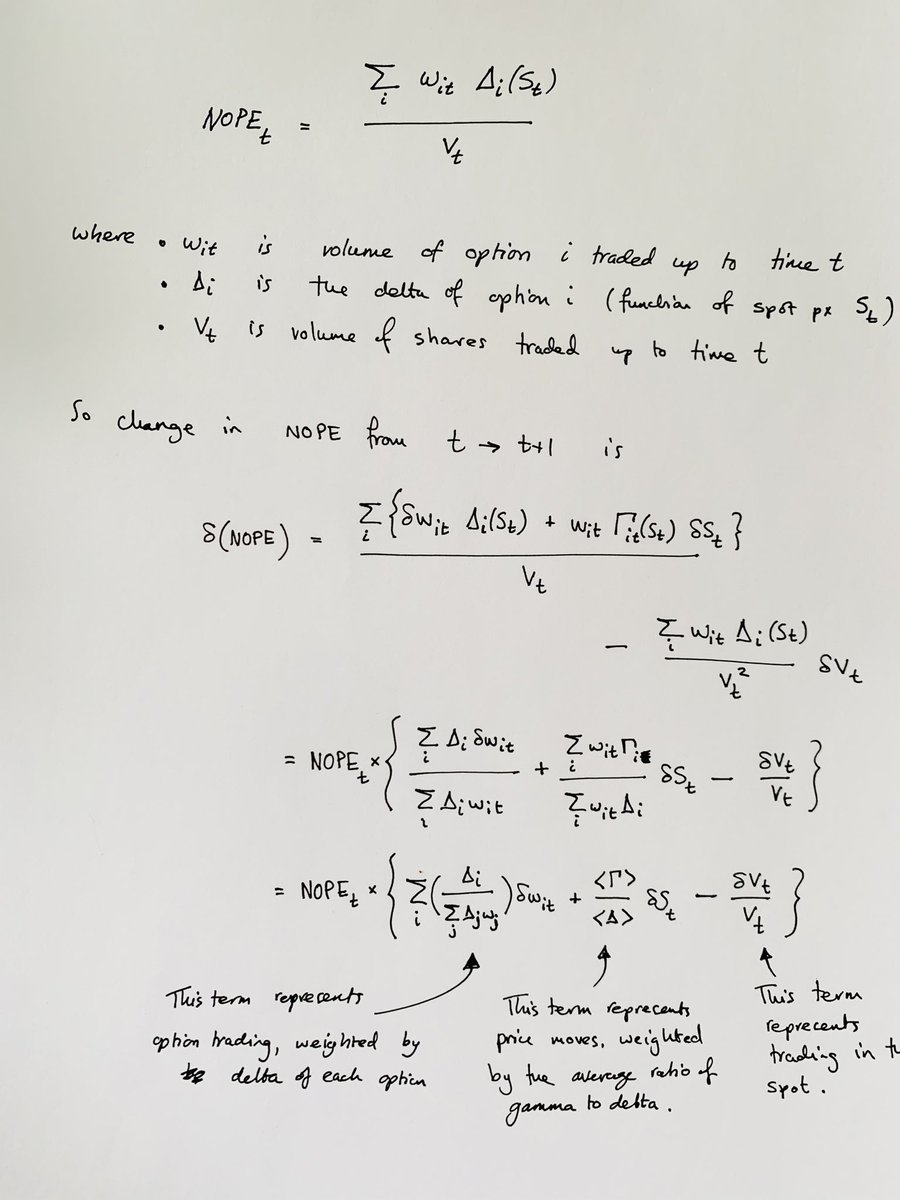 NOPE_t = Σ_i w_it Δ_i(S_t) / V_t
where • w_it is volume of option i traded up to time t
• Δ_i is the delta of option i (function of spot px S_t)
• V_t is volume of shares traded up to time t
So change in NOPE from t → t+1 is
δ(NOPE) = Σ_i {δw_it Δ_i(S_t) + w_it Γ_it(S_t) δS_t} / V_t
− Σ_i w_it Δ_i(S_t) / V_t² δV_t
= NOPE_t × { Σ_i Δ_i δw_it / Σ_i Δ_i w_it + Σ_i w_it Γ_i / Σ_i w_it Δ_i δS_t − δV_t / V_t }
= NOPE_t × { Σ_i (Δ_i / Σ_j Δ_j w_j) δw_it + <Γ> / <Δ> δS_t − δV_t / V_t }
This term represents
option trading, weighted by
delta of each option
This term represents
price moves, weighted
by the average ratio of
gamma to delta.
This term
represents
trading in
spot.